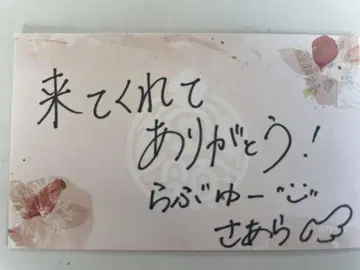 来てくれて
ありがとう!
らぶゅー
さあら